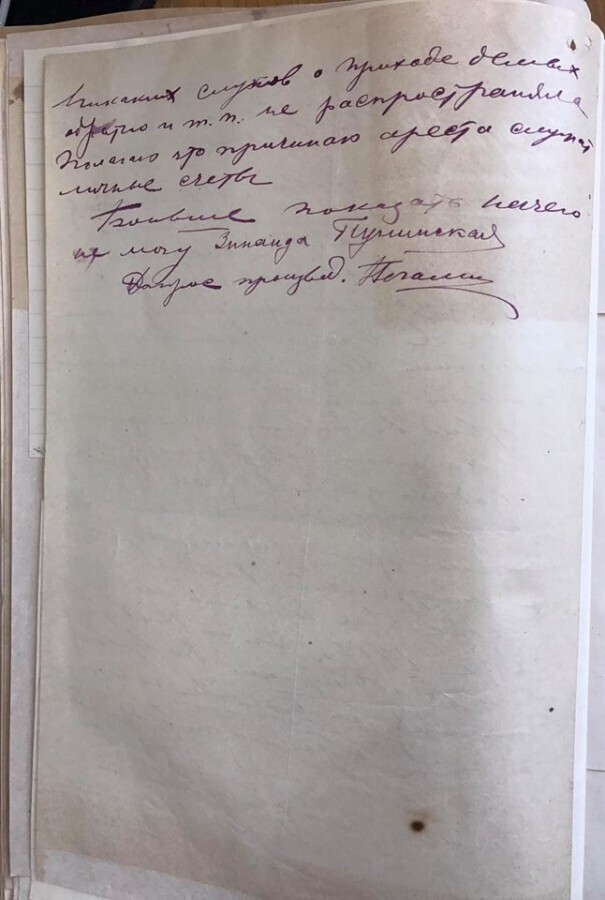 Никаких слухов о приходе белых
обратно и т.п. не распространяла
Полагаю что причиною ареста служат
личные счеты
Больше показать ничего
не могу Зинаида
Допрос произвел.